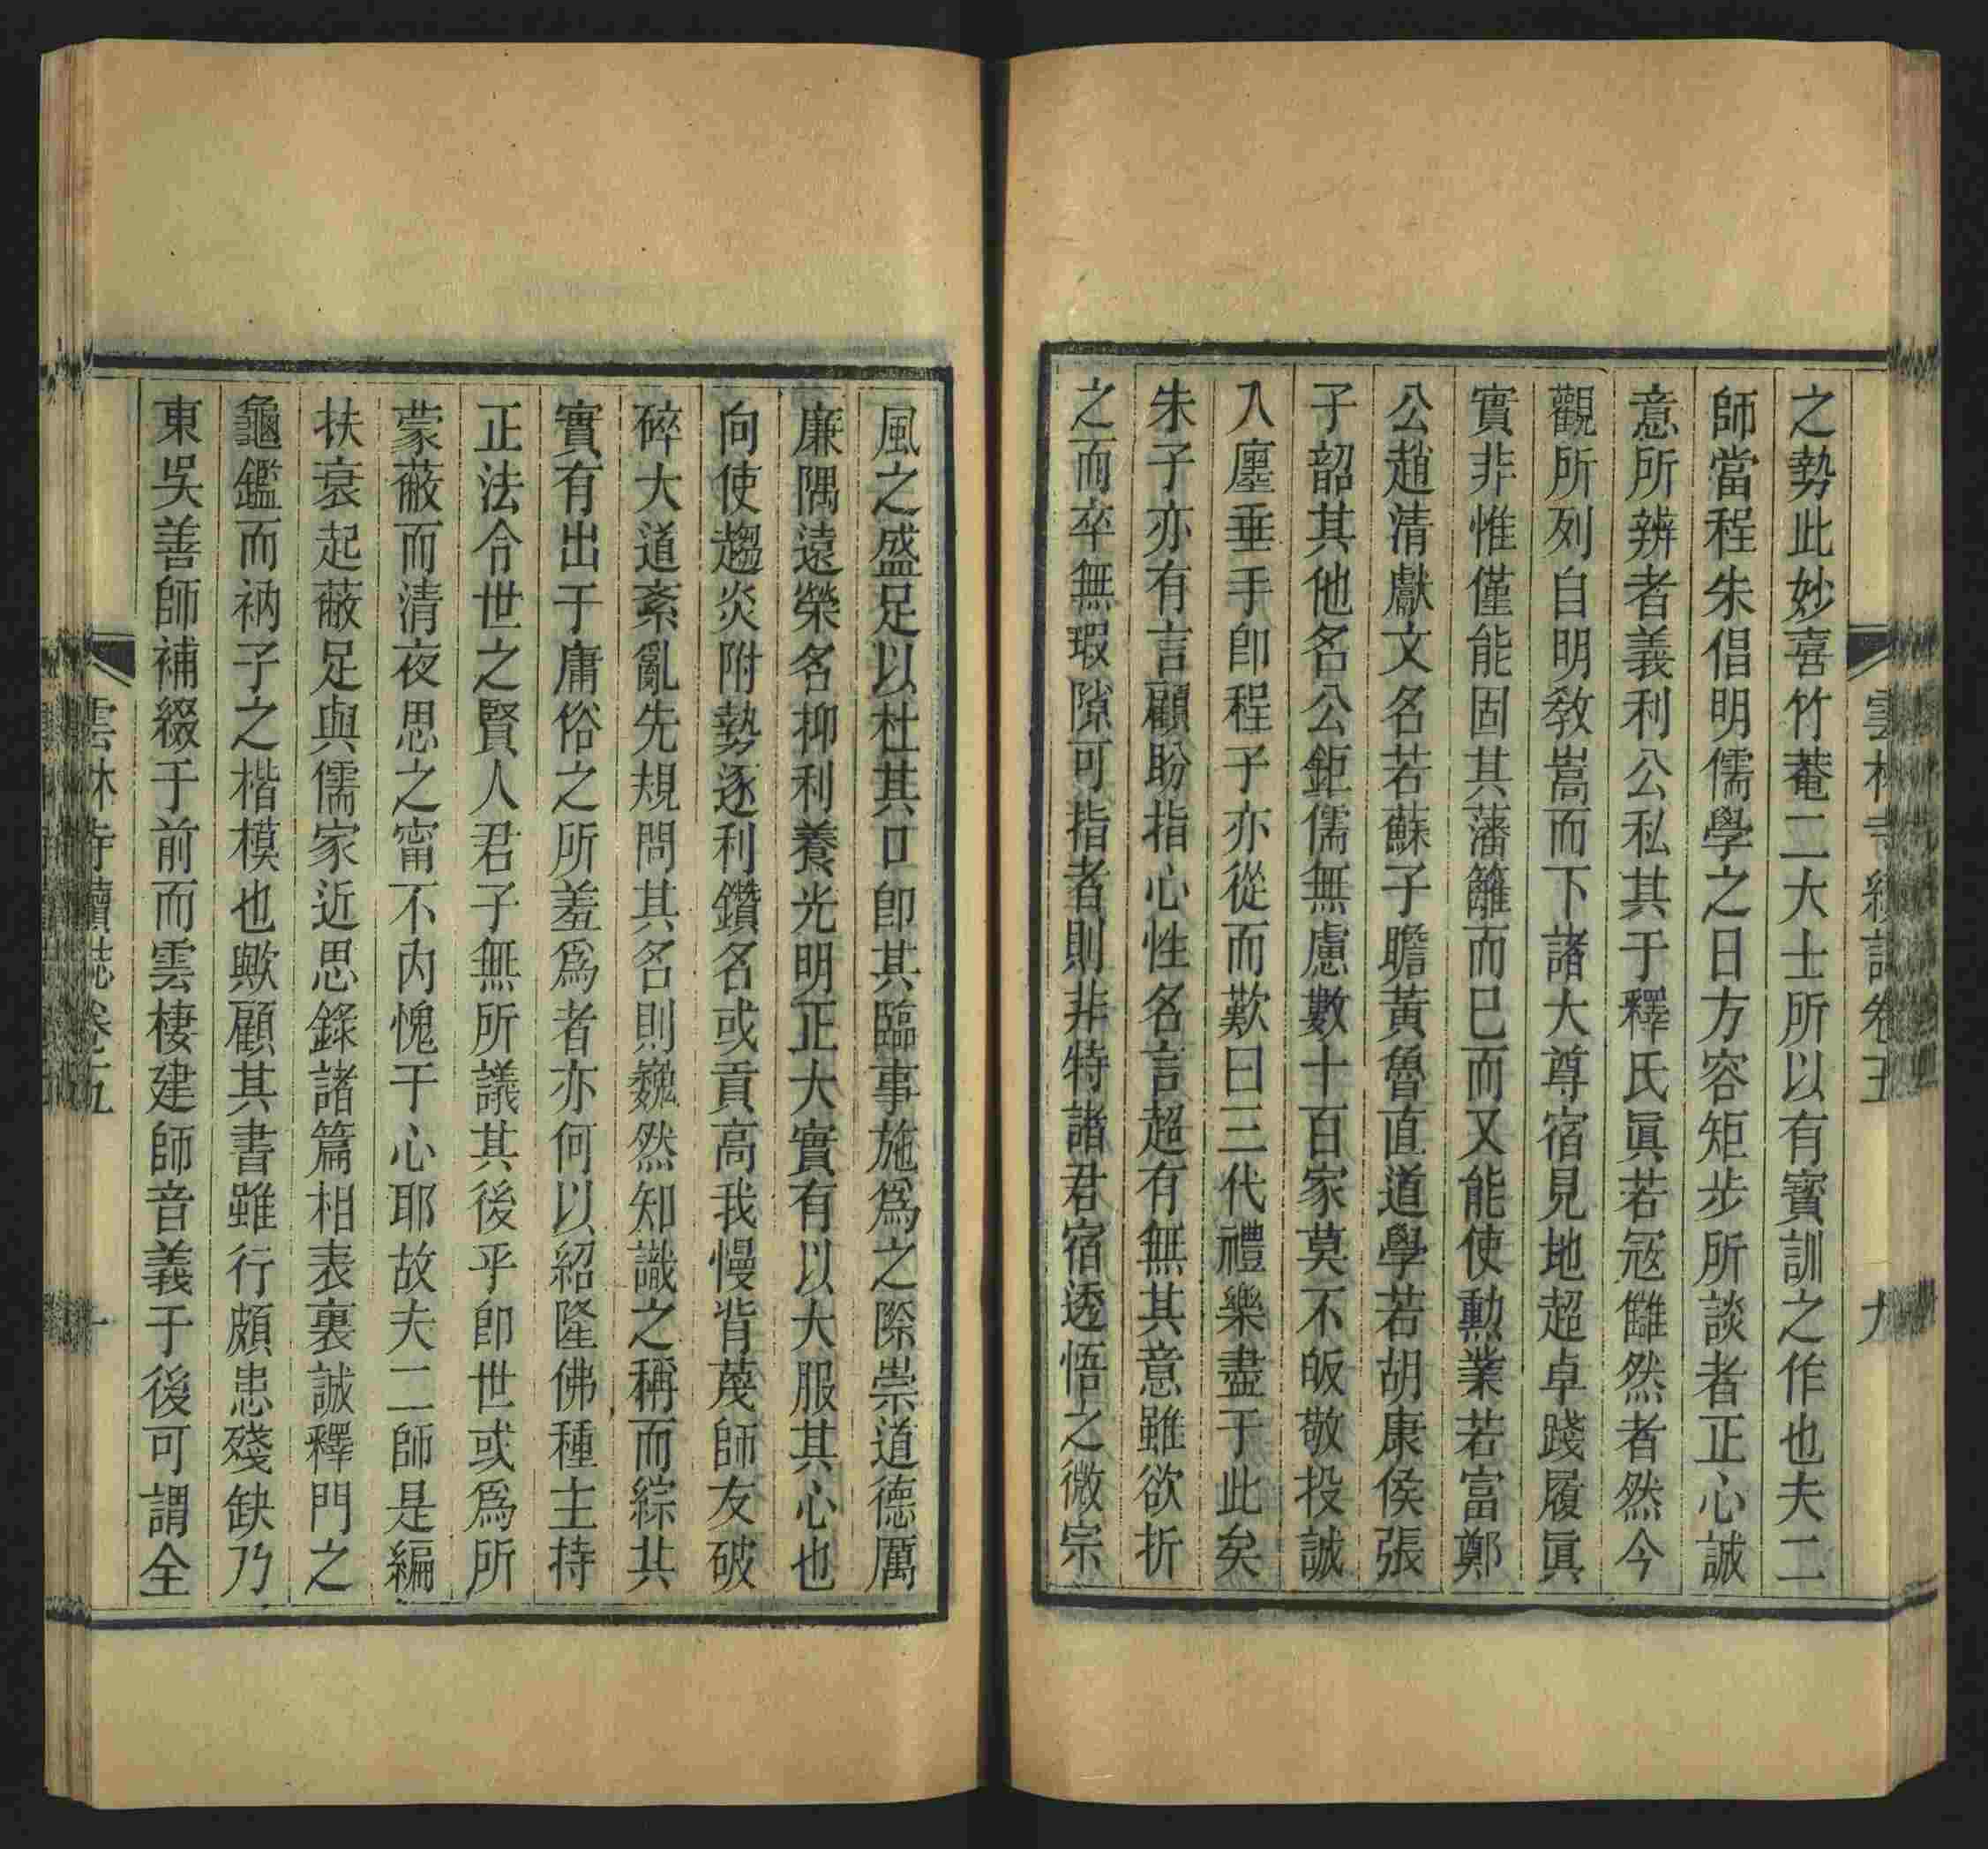 雲林寺續誌卷五
九
之勢此妙喜竹菴二大士所以有寶訓之作也夫二
師當程朱倡明儒學之日方容矩步所談者正心誠
意所辨者義利公私其于釋氏眞若宼雠然者然今
觀所列自明敎嵩而下諸大尊宿見地超卓踐履眞
實非惟僅能固其藩籬而巳而又能使勳業若富鄭
公趙清獻文名若蘇子瞻黃魯直道學若胡康侯張
子韶其他名公鉅儒無慮數十百家莫不皈敬投誠
入廛垂手卽程子亦從而歎曰三代禮樂盡于此矣
朱子亦有言顧盼指心性名言超有無其意雖欲折
之而卒無瑕隙可指者則非特諸君宿透悟之微宗
風之盛足以杜其口卽其臨事施爲之際崇道德厲
廉隅遠榮名抑利養光明正大實有以大服其心也
向使趨炎附勢逐利鑽名或貢高我慢背蔑師友破
碎大道紊亂先規問其名則巍然知識之稱而綜其
實有出于庸俗之所羞爲者亦何以紹隆佛種主持
正法令世之賢人君子無所議其後乎卽世或爲所
蒙蔽而清夜思之甯不內愧于心耶故夫二師是編
扶衰起蔽足與儒家近思錄諸篇相表裏誠釋門之
龜鑑而衲子之楷模也歟顧其書雖行頗患殘缺乃
東吳善師補綴于前而雲棲建師音義于後可謂全
雲林寺續誌卷五
十